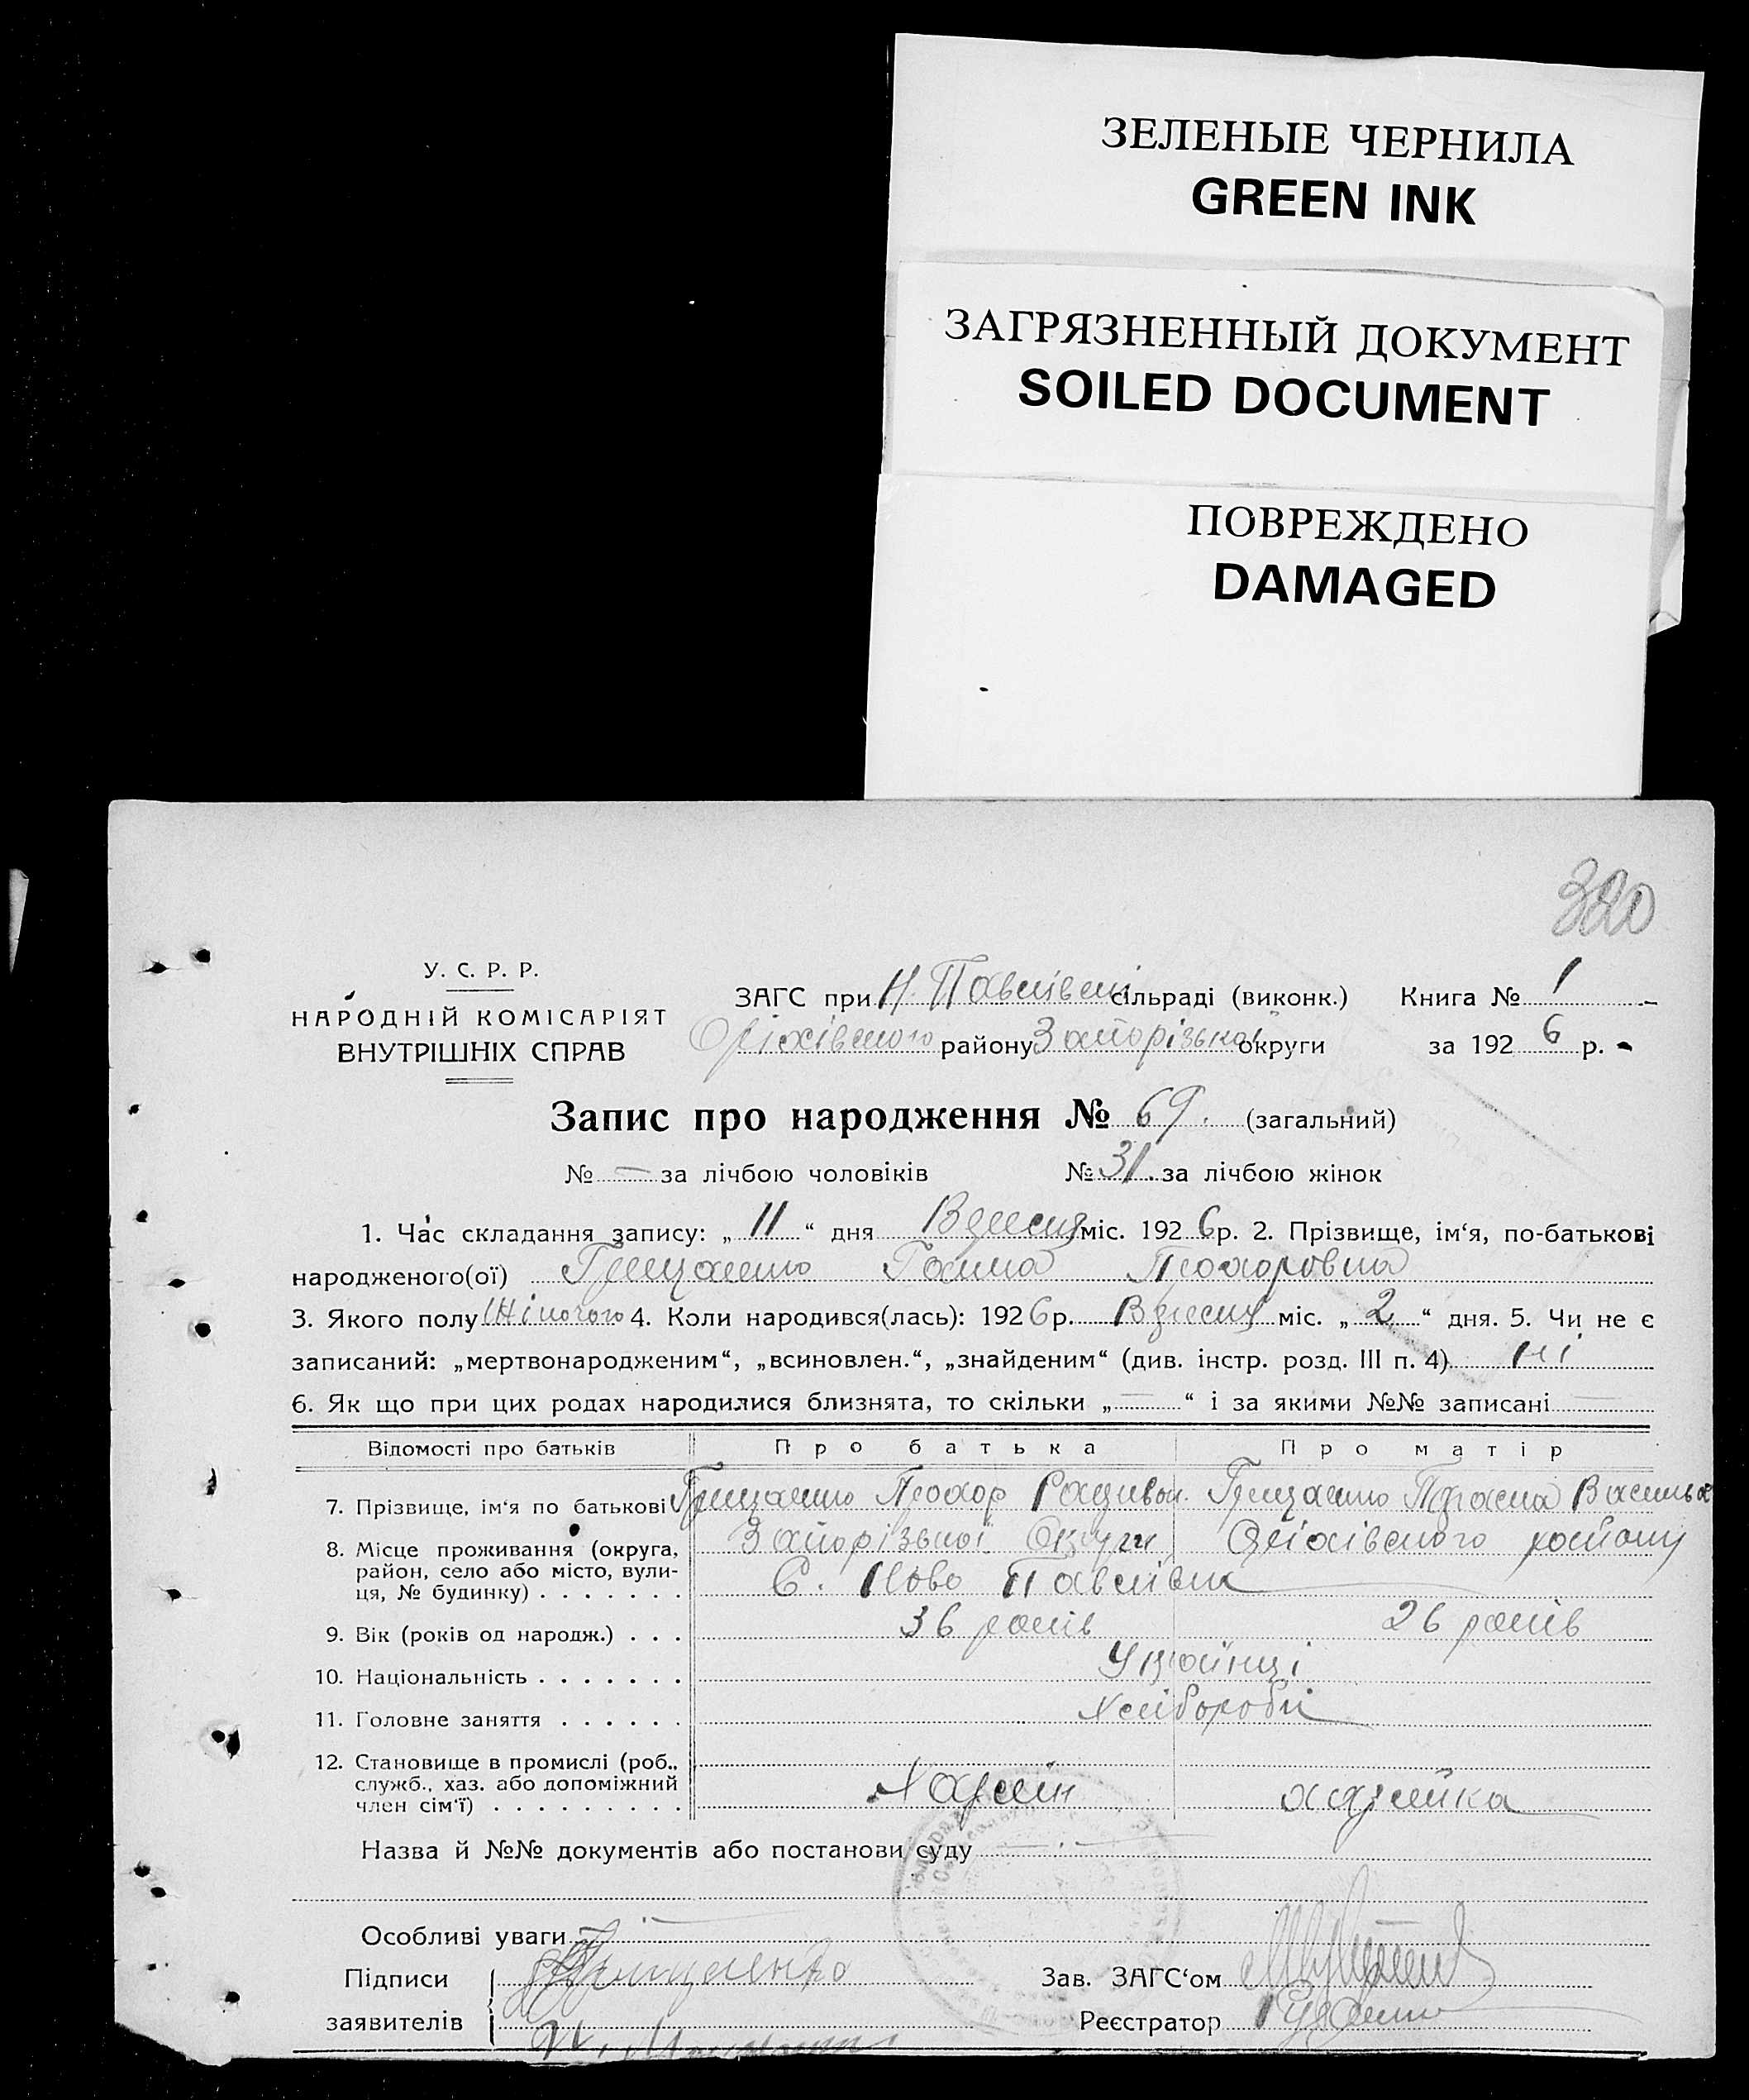 ЗЕЛЕНЫЕ ЧЕРНИЛА
GREEN INK
ЗАГРЯЗНЕННЫЙ ДОКУМЕНТ
SOILED DOCUMENT
ПОВРЕЖДЕНО
DAMAGED
320
У. С. Р. Р.
НАРОДНІЙ КОМІСАРІЯТ
ВНУТРІШНІХ СПРАВ
ЗАГС при Н. Павлівській сільраді (виконк.) Книга № 1
Оріхівського району Запорізької округи за 1926 р.
Запис про народження № 69. (загальний)
№ — за лічбою чоловіків № 31. за лічбою жінок
1. Час складання запису: „ 11 “ дня Вересня міс. 1926 р. 2. Прізвище, ім‘я, по-батькові
народженого(ої) Грищенко Галина Прохоровна
3. Якого полу Жіночого 4. Коли народився(лась): 1926 р. Вересня міс. „ 2 “ дня. 5. Чи не є
записаний: „мертвонародженим“, „всиновлен.“, „знайденим“ (див. інстр. розд. III п. 4) ні
6. Як що при цих родах народилися близнята, то скільки „ — “ і за якими №№ записані —
Відомості про батьків Про батька Про матір
7. Прізвище, ім‘я по батькові Грищенко Прохор Грищенко
8. Місце проживання (округа, Запорізької Округи Оріхівського району
район, село або місто, вули- С. Ново Павлівка
ця, № будинку) . . . . . . .
9. Вік (років од народж.) . . . 36 років 26 років
10. Національність . . . . . . . Українці
11. Головне заняття . . . . . . Хлібороби
12. Становище в промислі (роб.,
служб., хаз. або допоміжний Хазяїн хазяйка
член сім‘ї) . . . . . . . . .
Назва й №№ документів або постанови суду —
Особливі уваги —
Підписи Грищенко Зав. ЗАГС‘ом
заявителів Реєстратор